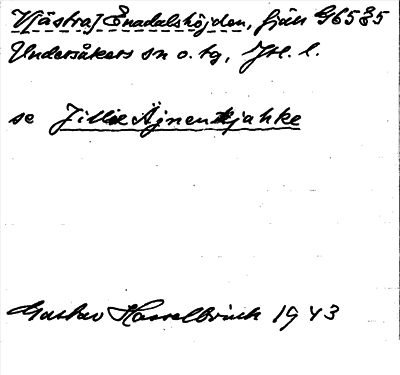 V(ästra) Enadalshöjden, fjäll G6585
Undersåkers sn o. tg, Jtl. l.
se Jillie Äjnentjahke
Gustav Hasselbrink 1943